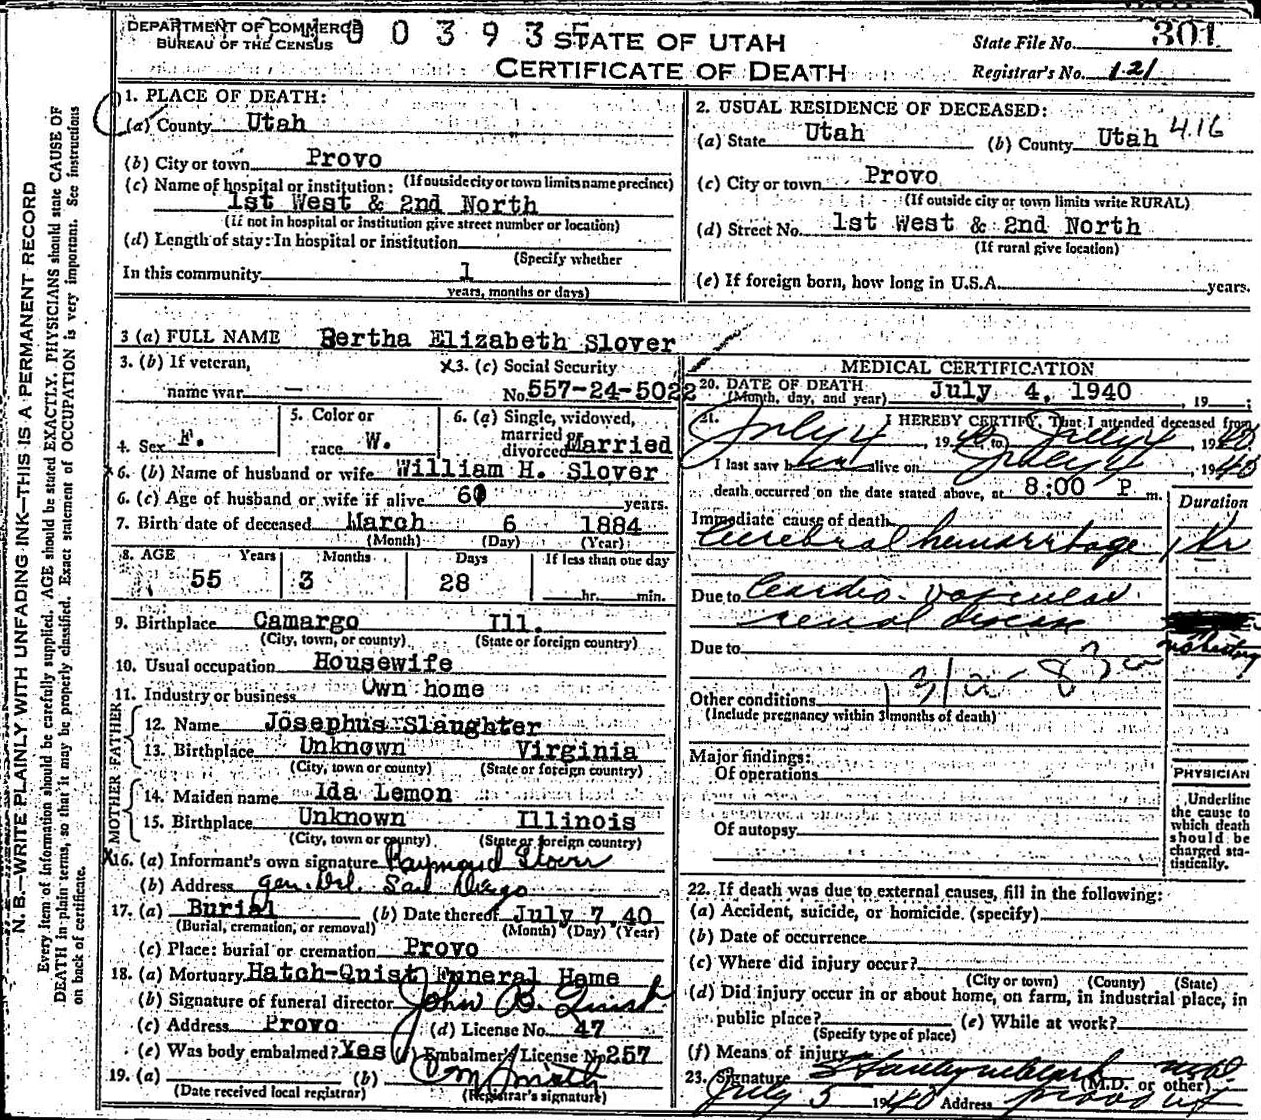 DEPARTMENT OF COMMERCE
BUREAU OF THE CENSUS
003935
STATE OF UTAH
CERTIFICATE OF DEATH
State File No. 301
Registrar's No. 121
N. B.—WRITE PLAINLY WITH UNFADING INK—THIS IS A PERMANENT RECORD
Every item of information should be carefully supplied. AGE should be stated EXACTLY. PHYSICIANS should state CAUSE OF
DEATH in plain terms, so that it may be properly classified. Exact statement of OCCUPATION is very important. See instructions
on back of certificate.
1. PLACE OF DEATH:
(a) County Utah
(b) City or town Provo
(If outside city or town limits name precinct)
(c) Name of hospital or institution:
1st West & 2nd North
(If not in hospital or institution give street number or location)
(d) Length of stay: In hospital or institution
(Specify whether
In this community 1
years, months or days)
2. USUAL RESIDENCE OF DECEASED:
(a) State Utah (b) County Utah 416
(c) City or town Provo
(If outside city or town limits write RURAL)
(d) Street No. 1st West & 2nd North
(If rural give location)
(e) If foreign born, how long in U.S.A. years.
3 (a) FULL NAME Bertha Elizabeth Slover
3. (b) If veteran,
name war —
x3. (c) Social Security
No. 557-24-5022
4. Sex F.
5. Color or
race W.
6. (a) Single, widowed,
married or
divorced Married
6. (b) Name of husband or wife William H. Slover
6. (c) Age of husband or wife if alive years.
7. Birth date of deceased March 6 1884
(Month) (Day) (Year)
8. AGE Years Months Days If less than one day
55 3 28 hr. min.
9. Birthplace Camargo Ill.
(City, town, or county) (State or foreign country)
10. Usual occupation Housewife
11. Industry or business Own home
FATHER
12. Name Josephus Slaughter
13. Birthplace Unknown Virginia
(City, town or county) (State or foreign country)
MOTHER
14. Maiden name Ida Lemon
15. Birthplace Unknown Illinois
(City, town or county) (State or foreign country)
x16. (a) Informant's own signature Raymond Slover
(b) Address Gen. Del. San Diego
17. (a) Burial (b) Date thereof July 7 40
(Burial, cremation, or removal) (Month) (Day) (Year)
(c) Place: burial or cremation Provo
18. (a) Mortuary Hatch-Quist Funeral Home
(b) Signature of funeral director John B. Quist
(c) Address Provo (d) License No. 47
(e) Was body embalmed? Yes (f) Embalmer's License No 257
19. (a) (b)
(Date received local registrar) (Registrar's signature)
MEDICAL CERTIFICATION
20. DATE OF DEATH July 4, 1940, 19 ;
(Month, day, and year)
21. I HEREBY CERTIFY, That I attended deceased from
July 4, 1940 to July 4, 1940
I last saw her alive on July 4, 1940
death occurred on the date stated above, at 8:00 P m.
Duration
Immediate cause of death
Cerebral hemorrhage 1 hr
Due to Cardio-vascular
renal disease
no history
Due to
Other conditions
(Include pregnancy within 3 months of death)
Major findings:
Of operations
Of autopsy
PHYSICIAN
Underline
the cause to
which death
should be
charged sta-
tistically.
22. If death was due to external causes, fill in the following:
(a) Accident, suicide, or homicide (specify)
(b) Date of occurrence
(c) Where did injury occur?
(City or town) (County) (State)
(d) Did injury occur in or about home, on farm, in industrial place, in
public place? (e) While at work?
(Specify type of place)
(f) Means of injury
23. Signature (M.D. or other)
July 5 1940 Address Provo Ut